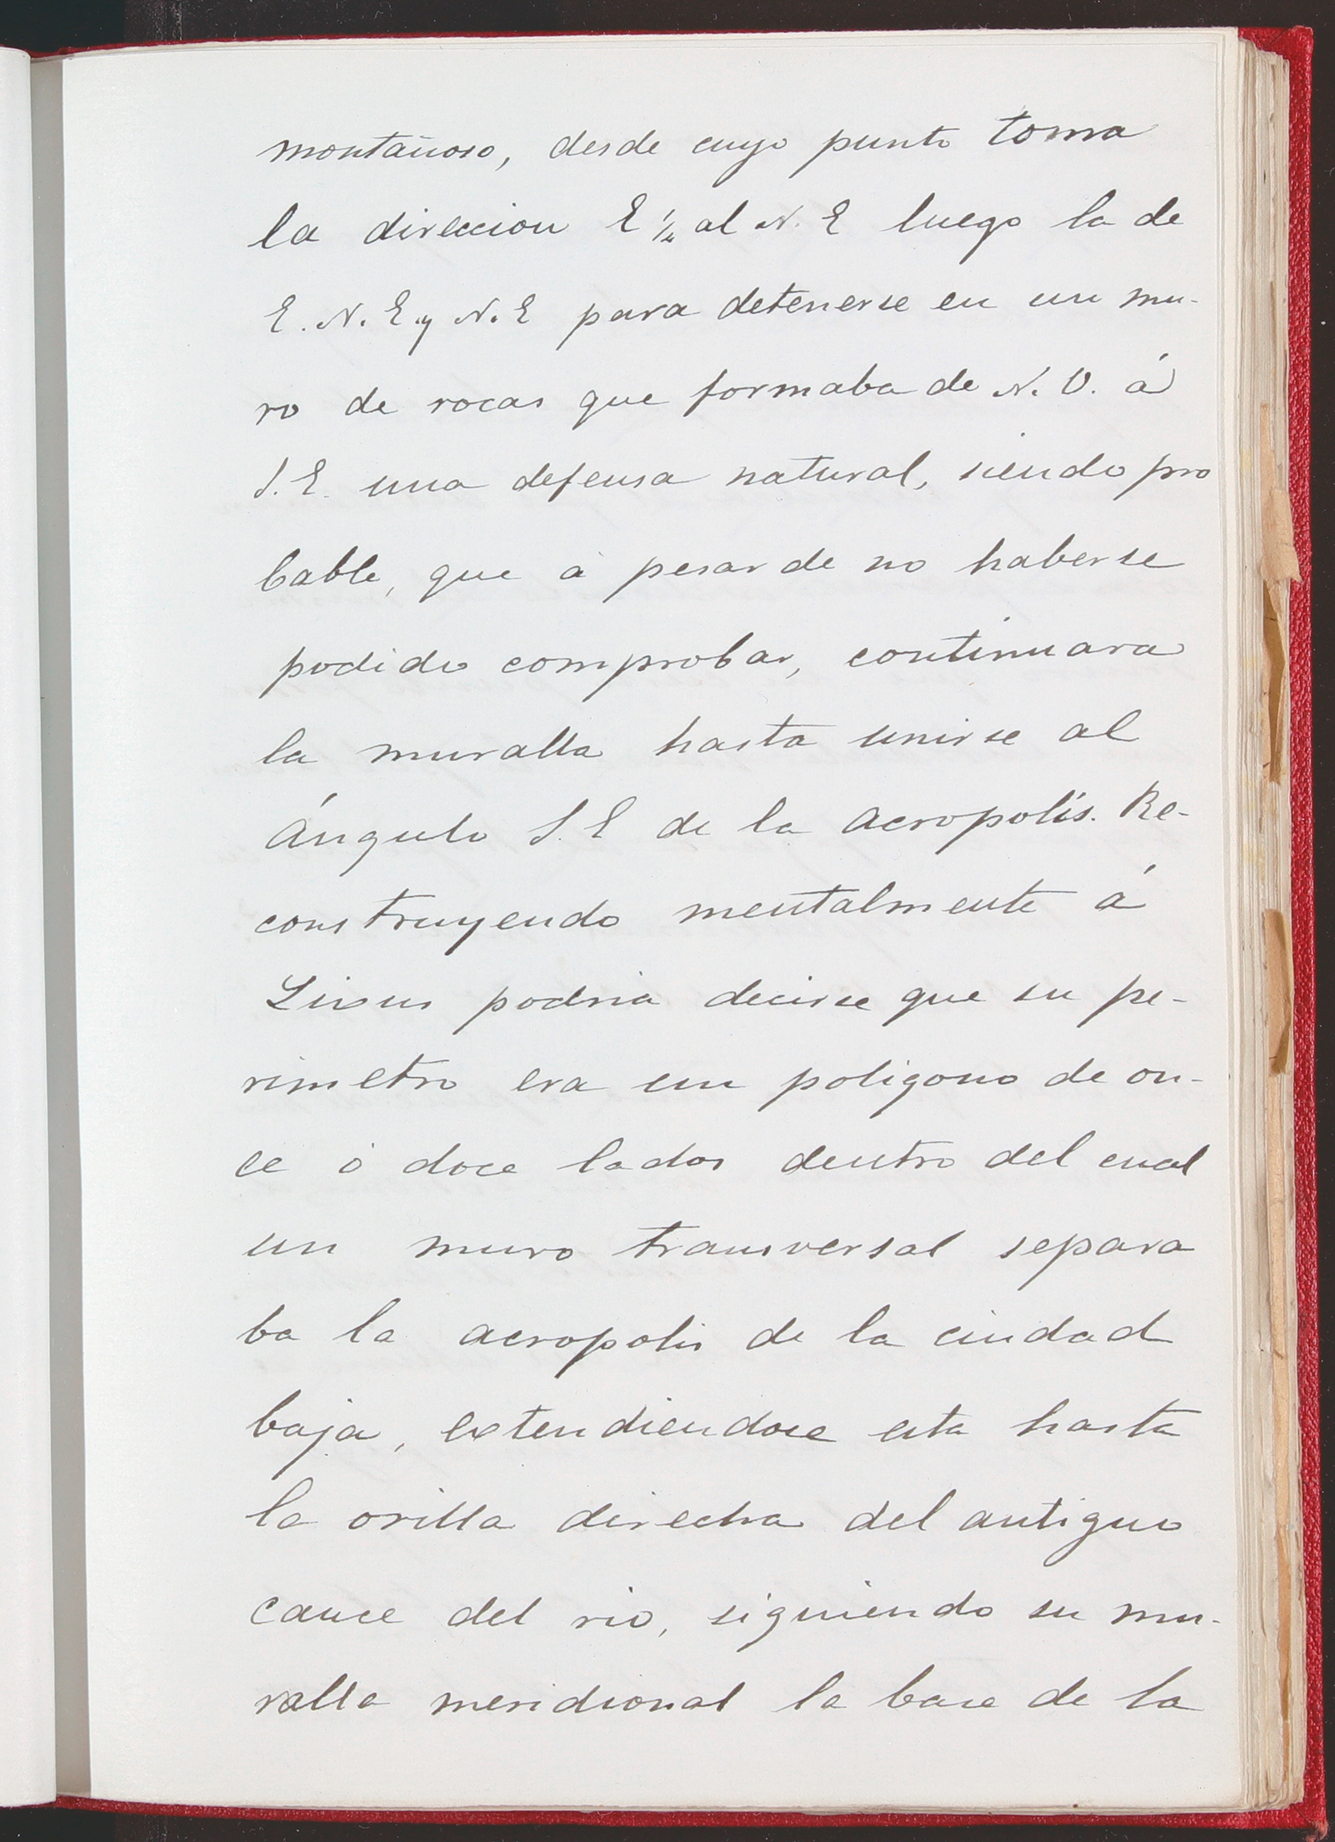 montañoso, desde cuyo punto toma
la direccion E ¼ al N. E luego la de
E. N. E y N. E para detenerse en un mu-
ro de rocas que formaba de N. O. á
S. E. una defensa natural, siendo pro
bable, que á pesar de no haberse
podido comprobar, continuara
la muralla hasta unirse al
ángulo S. E de la acropolis. Re-
construyendo mentalmente á
Lixus podria decirse que su pe-
rimetro era un poligono de on-
ce ó doce lados dentro del cual
un muro transversal separa
ba la acropolis de la ciudad
baja, extendiendose esta hasta
la orilla direcha del antiguo
cauce del rio, siguiendo su mu-
ralla meridional la base de la